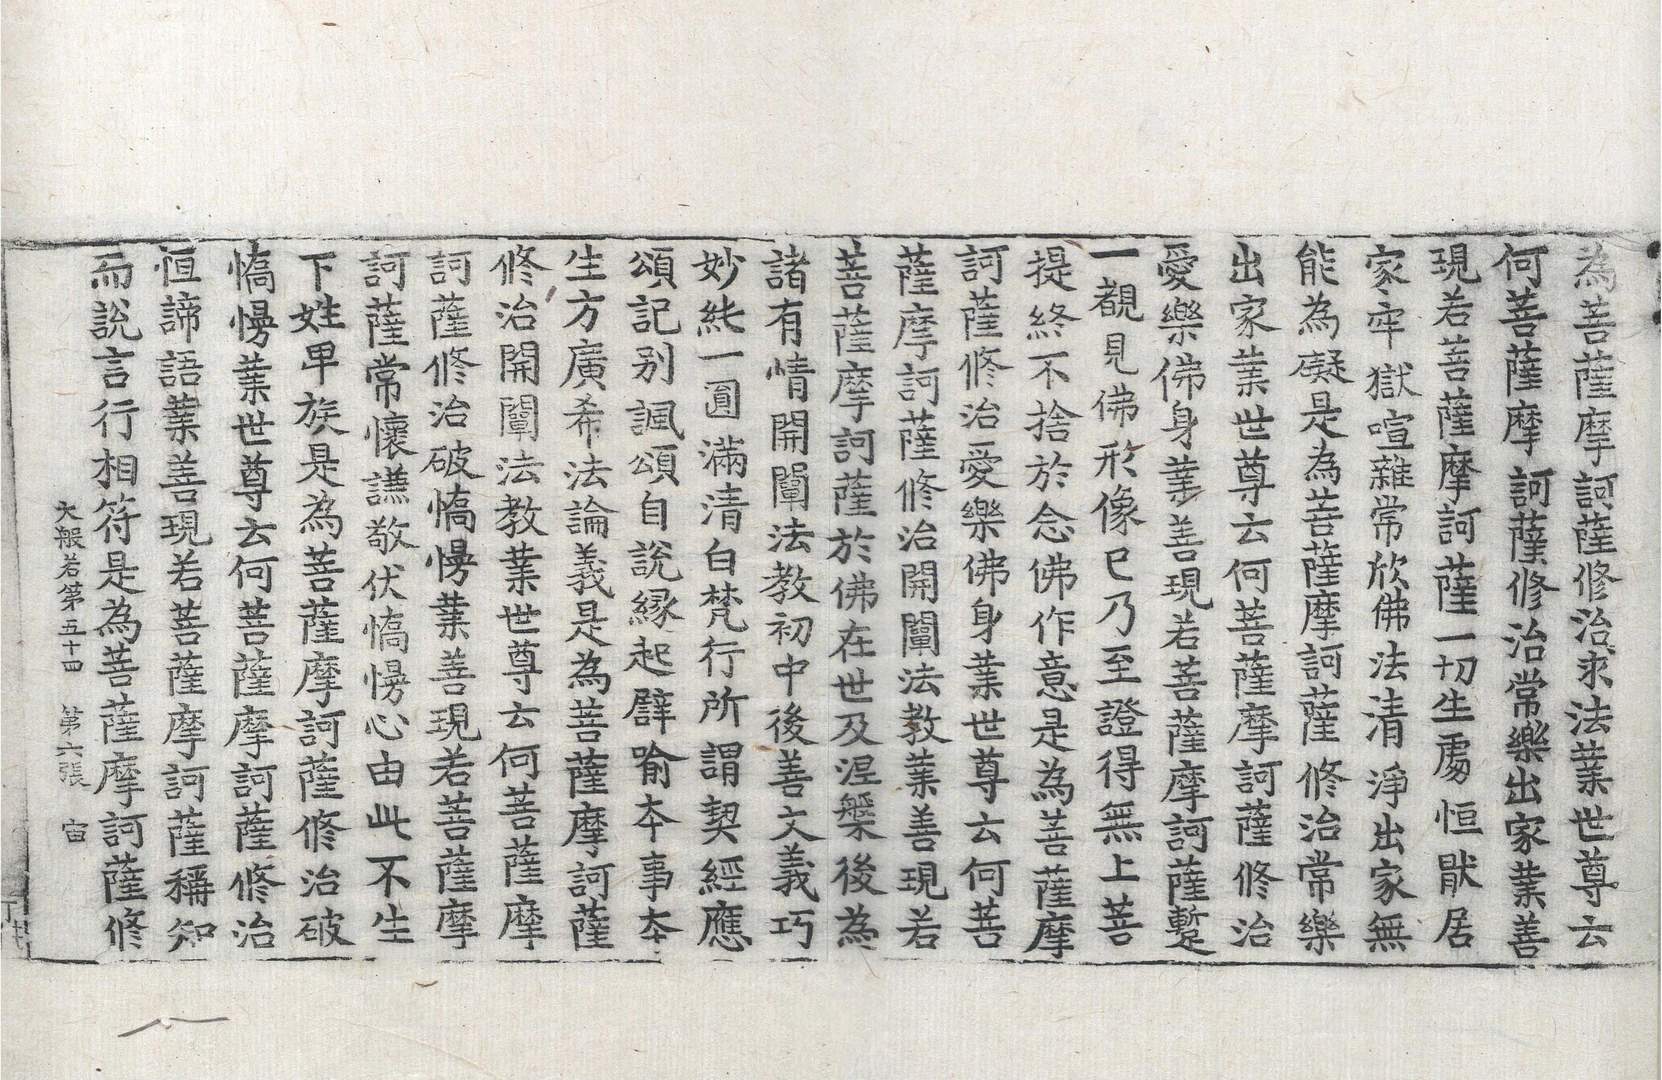 為菩薩摩訶薩修治求法業世尊云
何菩薩摩訶薩修治常樂出家業善
現若菩薩摩訶薩一切生處恒猒居
家牢獄喧雜常欣佛法清淨出家無
能為礙是為菩薩摩訶薩修治常樂
出家業世尊云何菩薩摩訶薩修治
愛樂佛身業善現若菩薩摩訶薩蹔
一覩見佛形像已乃至證得無上菩
提終不捨於念佛作意是為菩薩摩
訶薩修治愛樂佛身業世尊云何菩
薩摩訶薩修治開闡法教業善現若
菩薩摩訶薩於佛在世及涅槃後為
諸有情開闡法教初中後善文義巧
妙純一圓滿清白梵行所謂契經應
頌記别諷頌自說緣起譬喻本事本
生方廣希法論義是為菩薩摩訶薩
修治開闡法教業世尊云何菩薩摩
訶薩修治破憍慢業善現若菩薩摩
訶薩常懷謙敬伏憍慢心由此不生
下姓卑族是為菩薩摩訶薩修治破
憍慢業世尊云何菩薩摩訶薩修治
恒諦語業善現若菩薩摩訶薩稱知
而說言行相符是為菩薩摩訶薩修
大般若第五十四　第六張　宙